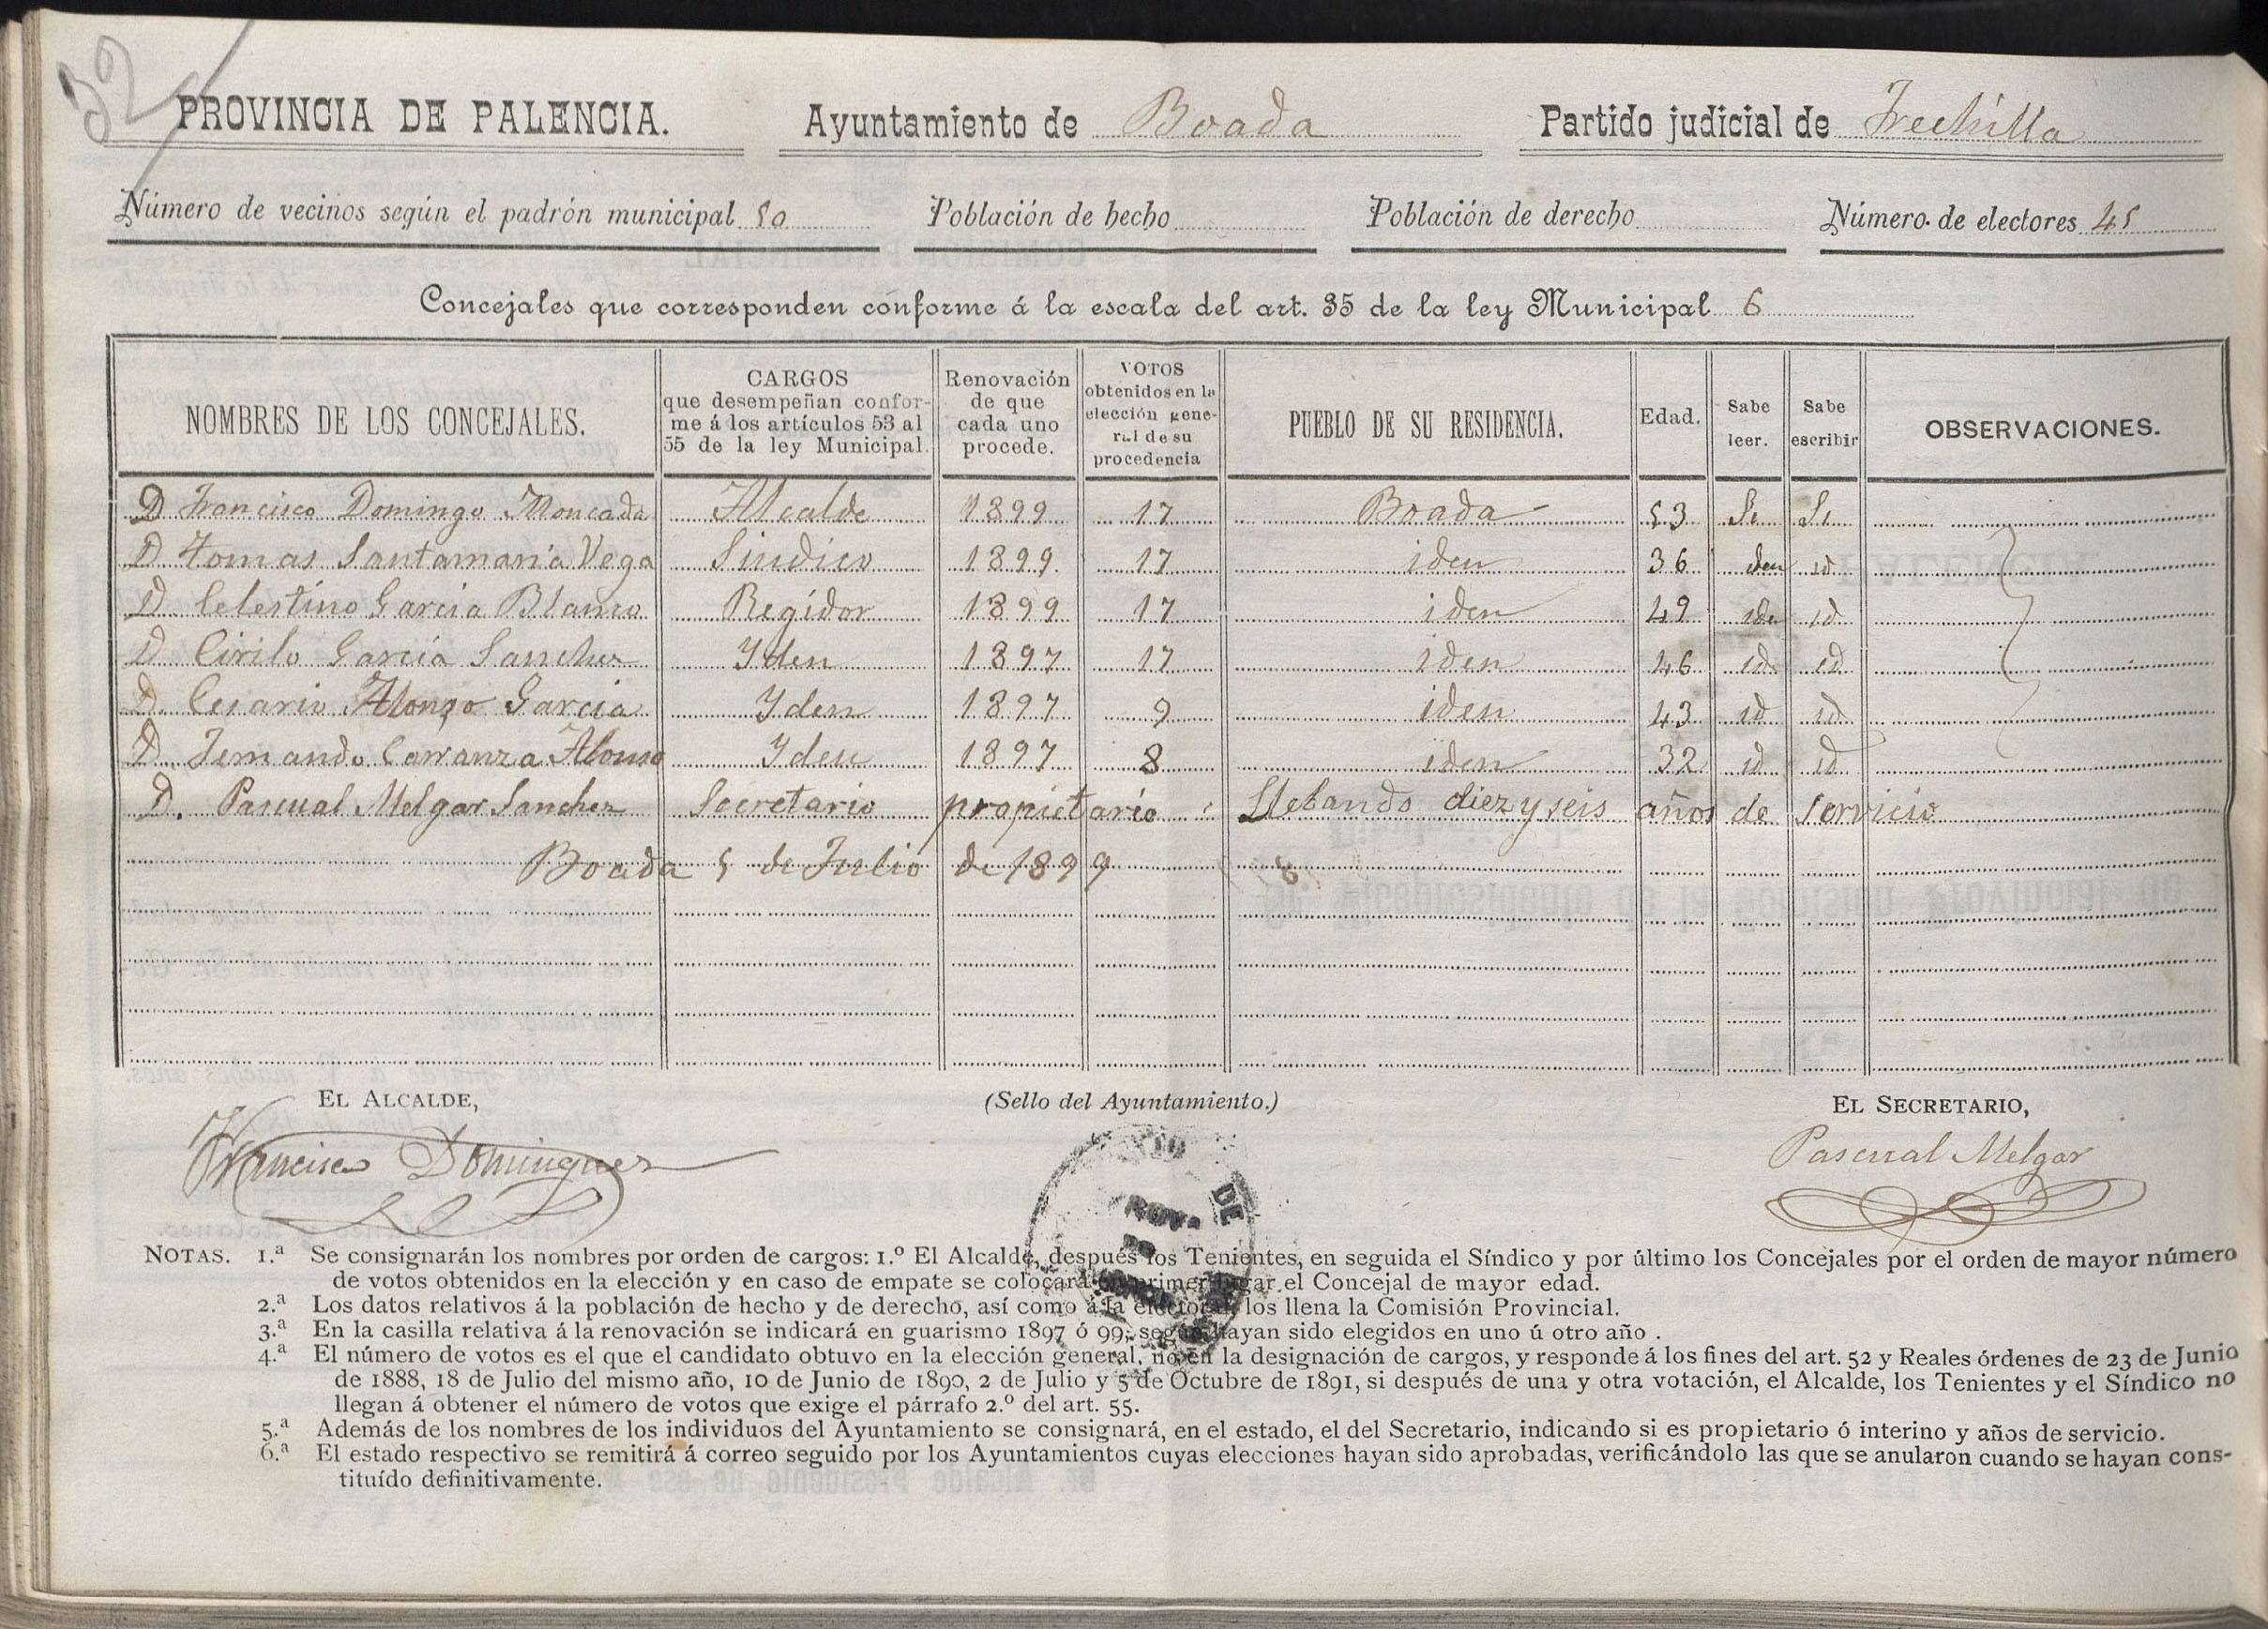 32
PROVINCIA DE PALENCIA. Ayuntamiento de Boada Partido judicial de Frechilla
Número de vecinos según el padrón municipal 50 Población de hecho Población de derecho Número de electores 45
Concejales que corresponden conforme á la escala del art. 35 de la ley Municipal 6
NOMBRES DE LOS CONCEJALES. CARGOS que desempeñan conforme á los artículos 53 al 55 de la ley Municipal. Renovación de que cada uno procede. VOTOS obtenidos en la elección general de su procedencia PUEBLO DE SU RESIDENCIA. Edad. Sabe leer. Sabe escribir OBSERVACIONES.
D Francisco Domingo Moncada Alcalde 1899 17 Boada 53 Si Si
D Tomas Santamaria Vega Sindico 1899 17 iden 36 iden id
D Celestino Garcia Blanco Regidor 1899 17 iden 49 iden id
D Cirilo Garcia Sanchez Yden 1897 17 iden 46 id id
D Cesario Alonzo Garcia Yden 1897 9 iden 43 id id
D. Fernando Carranza Alonso Yden 1897 8 iden 32 id id
D. Pascual Melgar Sanchez Secretario propietario Llebando diez y seis años de servicio
Boada 5 de Julio de 1899
EL ALCALDE, (Sello del Ayuntamiento.) EL SECRETARIO,
Francisco Dominguez Pascual Melgar
DE
NOTAS. 1.ª Se consignarán los nombres por orden de cargos: 1.º El Alcalde, después los Tenientes, en seguida el Síndico y por último los Concejales por el orden de mayor número
de votos obtenidos en la elección y en caso de empate se colocará en primer lugar el Concejal de mayor edad.
2.ª Los datos relativos á la población de hecho y de derecho, así como á la electoral, los llena la Comisión Provincial.
3.ª En la casilla relativa á la renovación se indicará en guarismo 1897 ó 99, según hayan sido elegidos en uno ú otro año .
4.ª El número de votos es el que el candidato obtuvo en la elección general, no en la designación de cargos, y responde á los fines del art. 52 y Reales órdenes de 23 de Junio
de 1888, 18 de Julio del mismo año, 10 de Junio de 1890, 2 de Julio y 5 de Octubre de 1891, si después de una y otra votación, el Alcalde, los Tenientes y el Síndico no
llegan á obtener el número de votos que exige el párrafo 2.º del art. 55.
5.ª Además de los nombres de los individuos del Ayuntamiento se consignará, en el estado, el del Secretario, indicando si es propietario ó interino y años de servicio.
6.ª El estado respectivo se remitirá á correo seguido por los Ayuntamientos cuyas elecciones hayan sido aprobadas, verificándolo las que se anularon cuando se hayan cons-
tituído definitivamente.